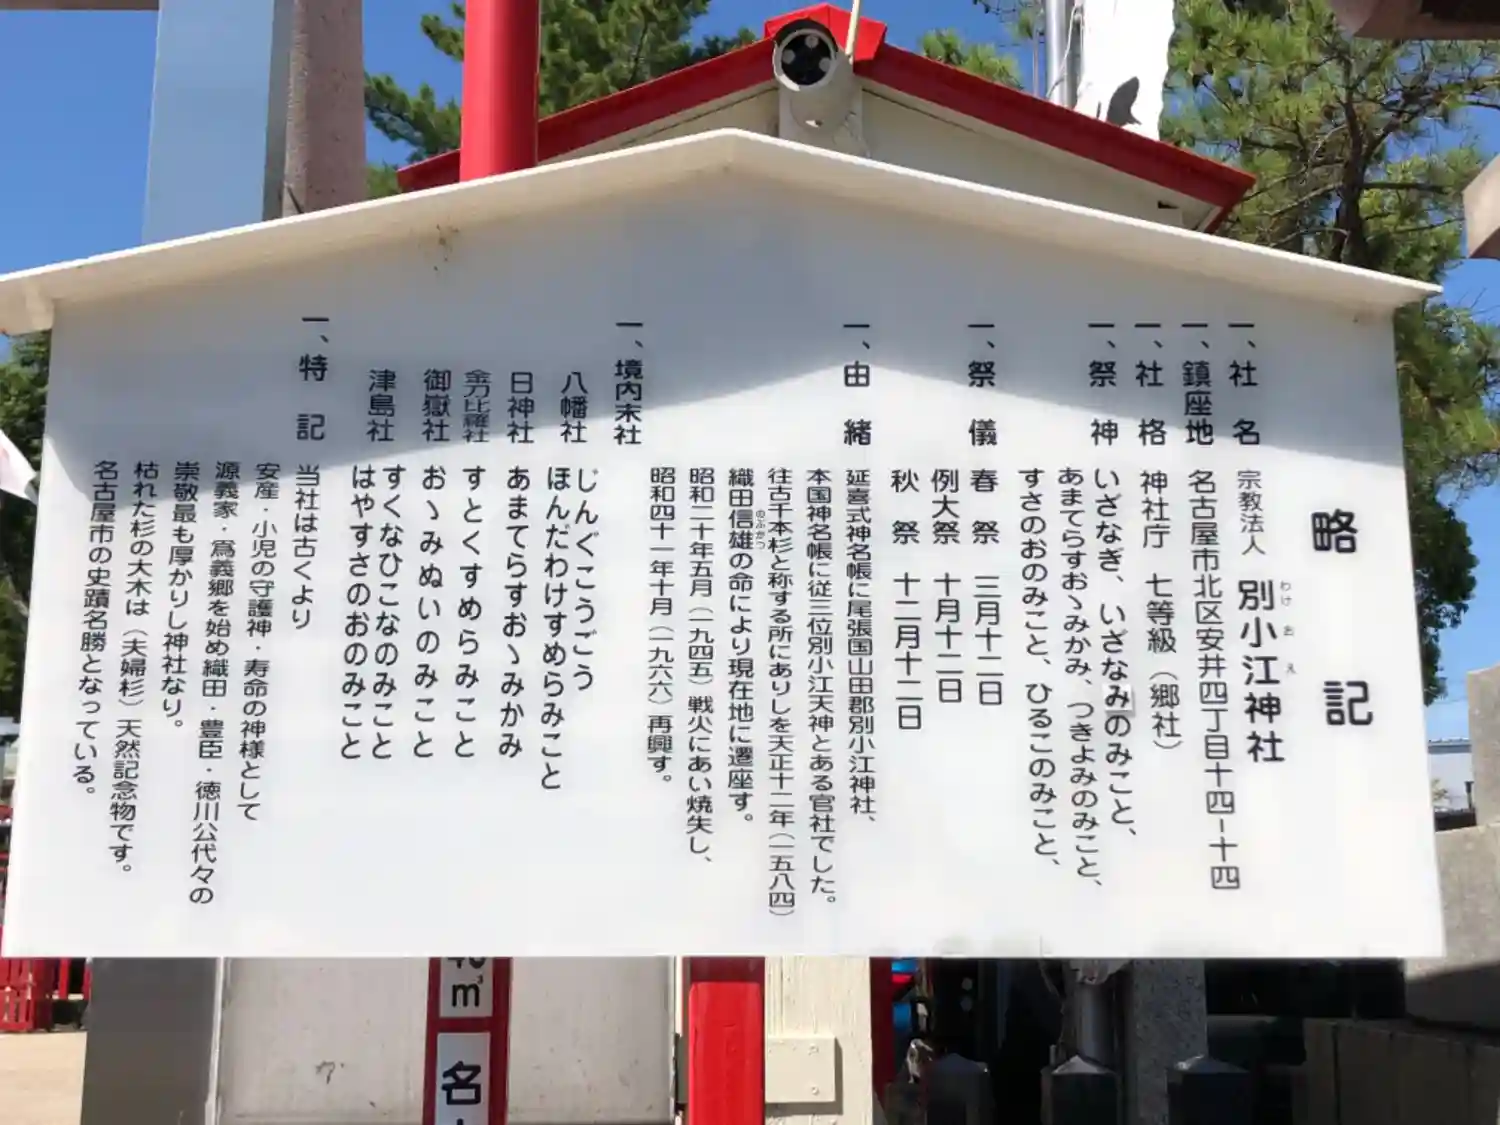 略記
一、社名 宗教法人 別小江神社
わけ お え
一、鎮座地 名古屋市北区安井四丁目十四-十四
一、社格 神社庁 七等級（郷社）
一、祭神 いざなぎ、いざなみのみこと、
あまてらすおゝみかみ、つきよみのみこと、
すさのおのみこと、ひるこのみこと、
一、祭儀 春祭 三月十二日
例大祭 十月十二日
秋祭 十二月十二日
一、由緒 延喜式神名帳に尾張国山田郡別小江神社、
本国神名帳に従三位別小江天神とある官社でした。
往古千本杉と称する所にありしを天正十二年（一五八四）
織田信雄の命により現在地に遷座す。
のぶかつ
昭和二十年五月（一九四五）戦火にあい焼失し、
昭和四十一年十月（一九六六）再興す。
一、境内末社
八幡社 じんぐこうごう
ほんだわけすめらみこと
日神社 あまてらすおゝみかみ
金刀比羅社 すとくすめらみこと
御嶽社 おゝみぬいのみこと
津島社 すくなひこなのみこと
はやすさのおのみこと
一、特記 当社は古くより
安産・小児の守護神・寿命の神様として
源義家・爲義郷を始め織田・豊臣・徳川公代々の
崇敬最も厚かりし神社なり。
枯れた杉の大木は（夫婦杉）天然記念物です。
名古屋市の史蹟名勝となっている。
m³
名